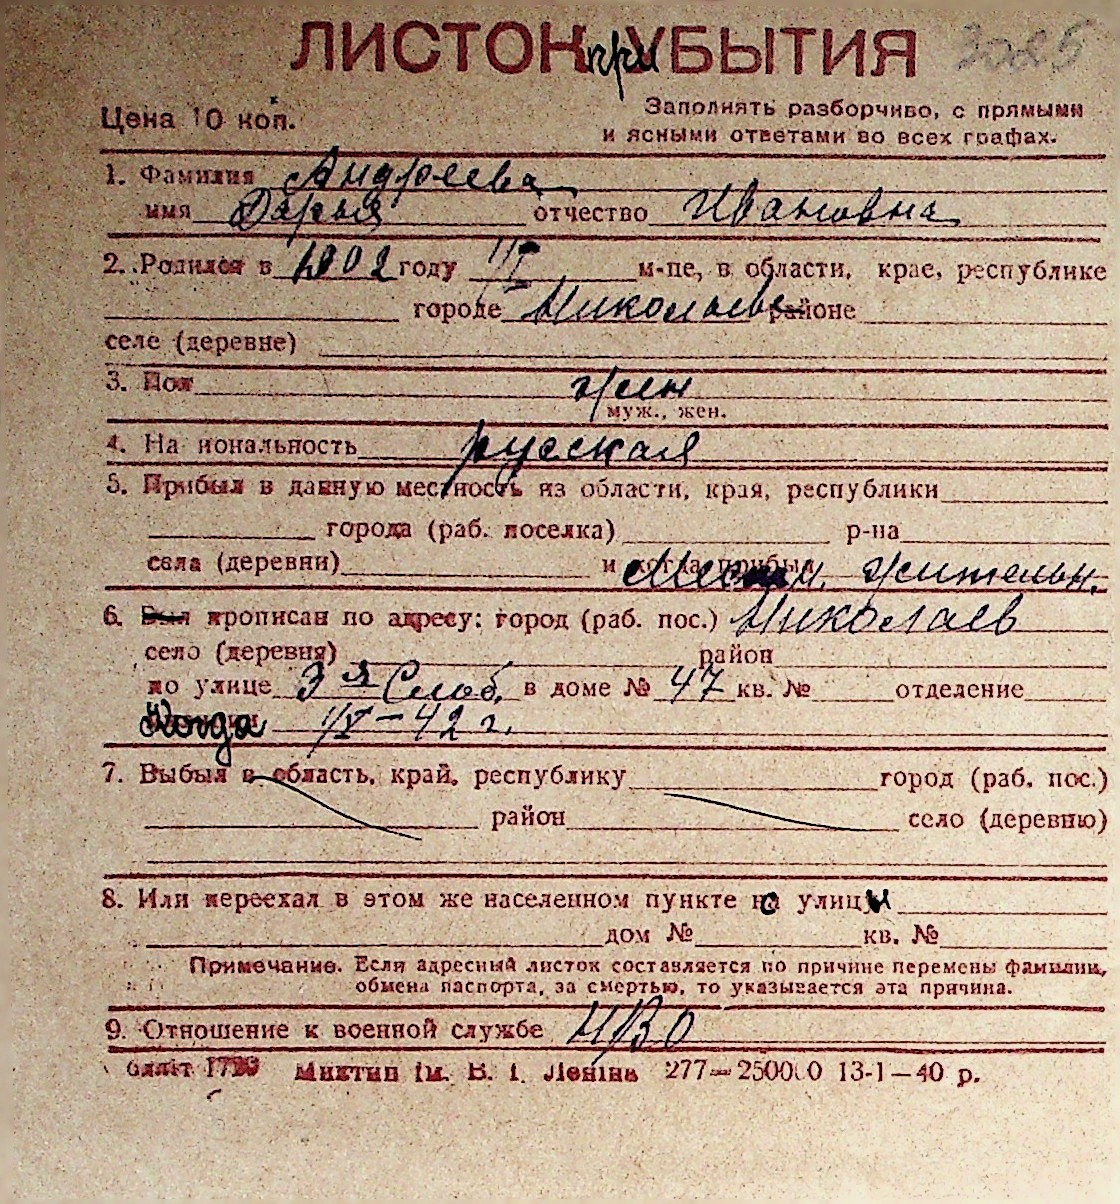 ЛИСТОК при УБЫТИЯ 3085
Цена 10 коп.
Заполнять разборчиво, с прямыми
и ясными ответами во всех графах.
1. Фамилия Андреева
имя Дарья отчество Ивановна
2. Родился в 1902 году м-це, в области, крае, республике
городе Николаеве районе
селе (деревне)
3. Пол жен
муж., жен.
4. На иональность русская
5. Прибыл в данную местность из области, края, республики
города (раб. поселка) р-на
села (деревни) и когда прибыл Местн. жительн.
6. Был прописан по адресу: город (раб. пос.) Николаев
село (деревня) район
по улице 3я Слоб. в доме № 47 кв. № отделение
Когда 1/X-42 г.
7. Выбыл в область, край, республику город (раб. пос.)
район село (деревню)
8. Или переехал в этом же населенном пункте на улицы
дом № кв. №
Примечание. Если адресный листок составляется по причине перемены фамилии,
обмена паспорта, за смертью, то указывается эта причина.
9. Отношение к военной службе Н/ВО
Облліт Миктип ім. В. І. Леніна 277—250000 13-1—40 р.